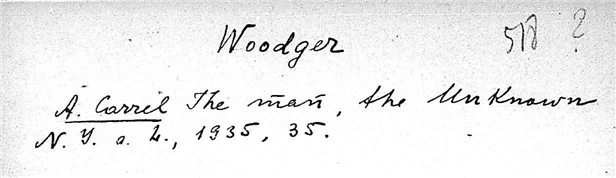 Woodger
518 ?
A. Carrel The man, the Unknown
N. Y. a. L., 1935, 35.